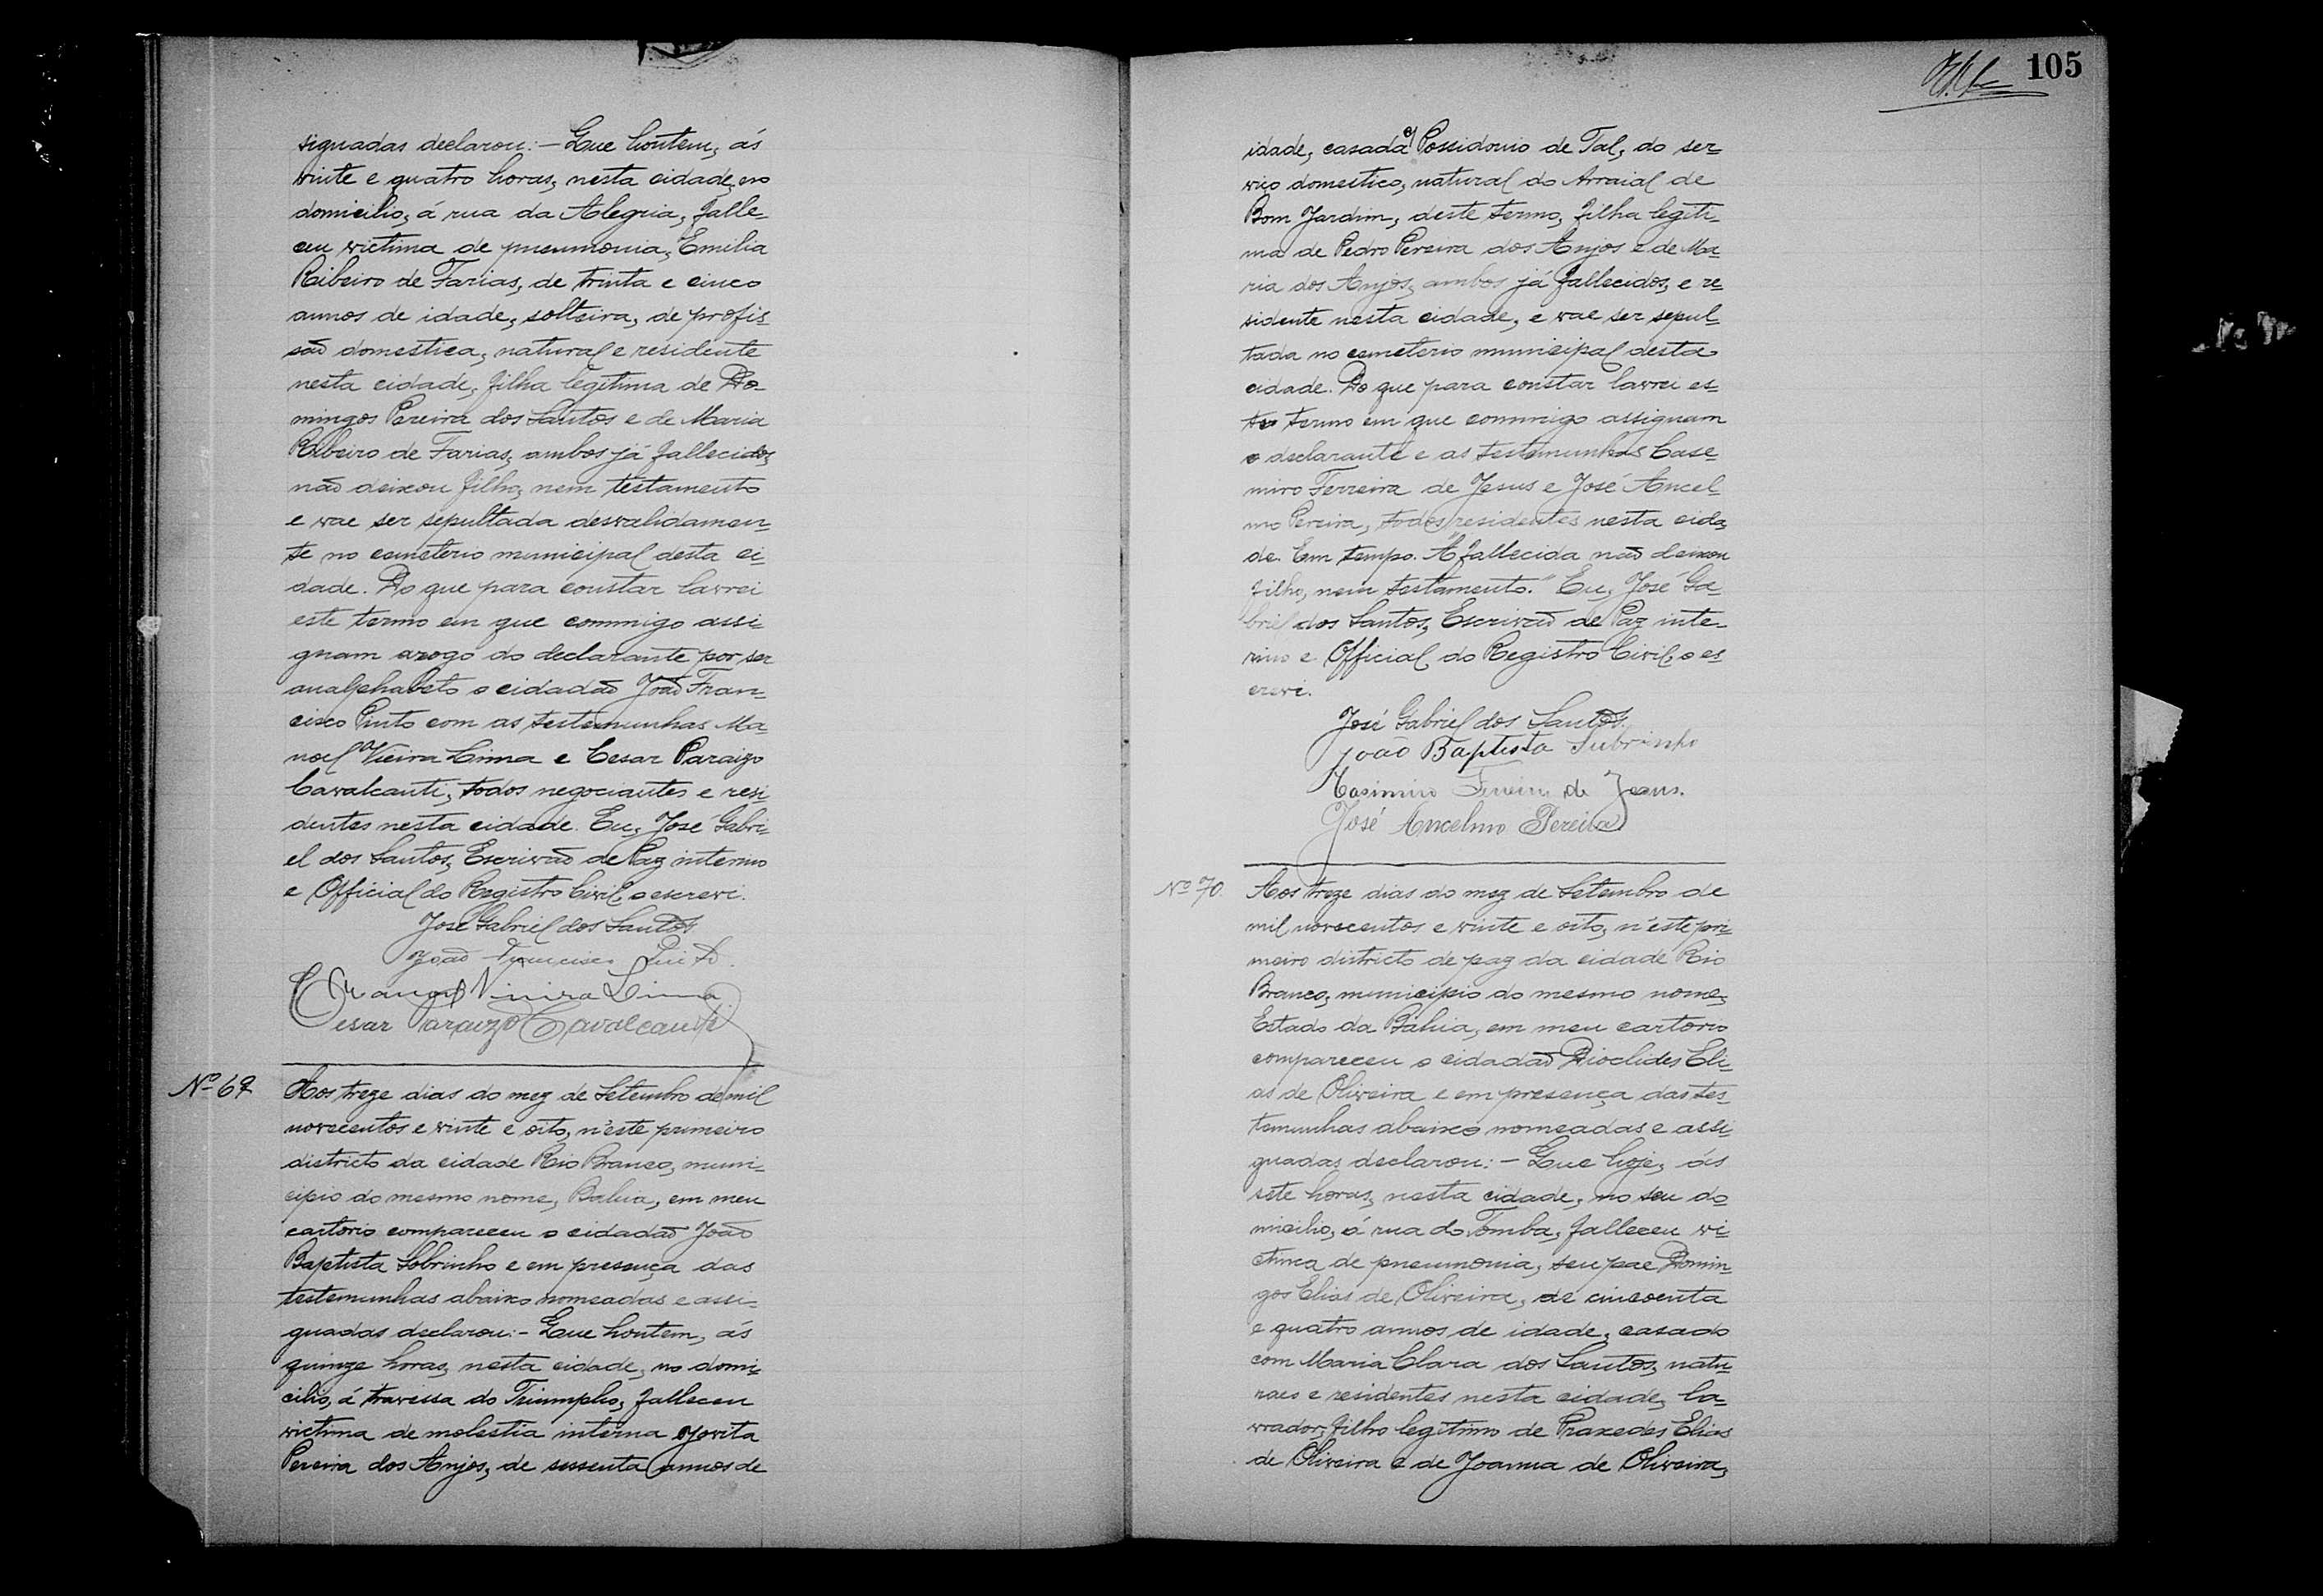 signadas declarou:- Que hontem, ás
vinte e quatro horas, nesta cidade, no
domicilio, á rua da Alegria, falle-
ceu victima de pneumonia, Emilia
Ribeiro de Farias, de trinta e cinco
annos de idade, solteira, de profis-
são domestica, natural e residente
nesta cidade, filha legitima de Do-
mingos Pereira dos Santos e de Maria
Ribeiro de Farias, ambos já fallecidos,
não deixou filho, nem testamento
e vae ser sepultada desvalidamen-
te no cemeterio municipal desta ci-
dade. Do que para constar lavrei
este termo em que commigo assi-
gnam arogo do declarante por ser
analphabeto o cidadão João Fran-
cisco Pinto com as testemunhas Ma-
noel Vieira Lima e Cesar Paraizo
Cavalcanti, todos negociantes e resi-
dentes nesta cidade. Eu, José Gabri-
el dos Santos, Escrivão de Paz interino
e Official do Registro Civil, o escrevi.
José Gabriel dos Santos
João Francisco Pinto.
Manoel Vieira Lima
Cesar Paraizo Cavalcanti
Nº 69
Aos treze dias do mez de Setembro de mil
novecentos e vinte e oito, n'este primeiro
districto da cidade Rio Branco, muni-
cipio do mesmo nome, Bahia, em meu
cartorio compareceu o cidadão João
Baptista Sobrinho e em presença das
testemunhas abaixo nomeadas e assi-
gnadas declarou:- Que hontem, ás
quinze horas, nesta cidade, no domi-
cilio, á travessa do Triumpho, falleceu
victima de molestia interna Jovita
Pereira dos Anjos, de sessenta annos de
105
idade, casada c/ Possidonio de Tal, do ser-
viço domestico, natural do Arraial de
Bom Jardim, deste termo, filha legiti-
ma de Pedro Pereira dos Anjos e de Ma-
ria dos Anjos, ambos já fallecidos, e re-
sidente nesta cidade, e vae ser sepul-
tada no cemeterio municipal desta
cidade. Do que para constar lavrei es-
te termo em que commigo assignam
o declarante e as testemunhas Case-
miro Ferreira de Jesus e José Ancel-
mo Pereira, todos residentes nesta cida-
de. Em tempo. "A fallecida não deixou
filho, nem testamento." Eu, José Ga-
briel dos Santos, Escrivão de Paz inte-
rino e Official do Registro Civil, o es-
crevi.
José Gabriel dos Santos.
João Baptista Subrinho
Casimiro Ferreira de Jesus.
José Ancelmo Pereira
Nº 70.
Aos treze dias do mez de Setembro de
mil novecentos e vinte e oito, n'este pri-
meiro districto de paz da cidade Rio
Branco, municipio do mesmo nome,
Estado da Bahia, em meu cartorio
compareceu o cidadão Dioclides Eli-
as de Oliveira e em presença das tes-
temunhas abaixo nomeadas e assi-
gnadas declarou:- Que hoje, ás
sete horas, nesta cidade, no seu do-
micilio, á rua do Tomba, falleceu vi-
ctima de pneumonia, seu pae Domin-
gos Elias de Oliveira, de cincoenta
e quatro annos de idade, casado
com Maria Clara dos Santos, natu-
raes e residentes nesta cidade, la-
vrador, filho legitimo de Praxedes Elias
de Oliveira e de Joanna de Oliveira,